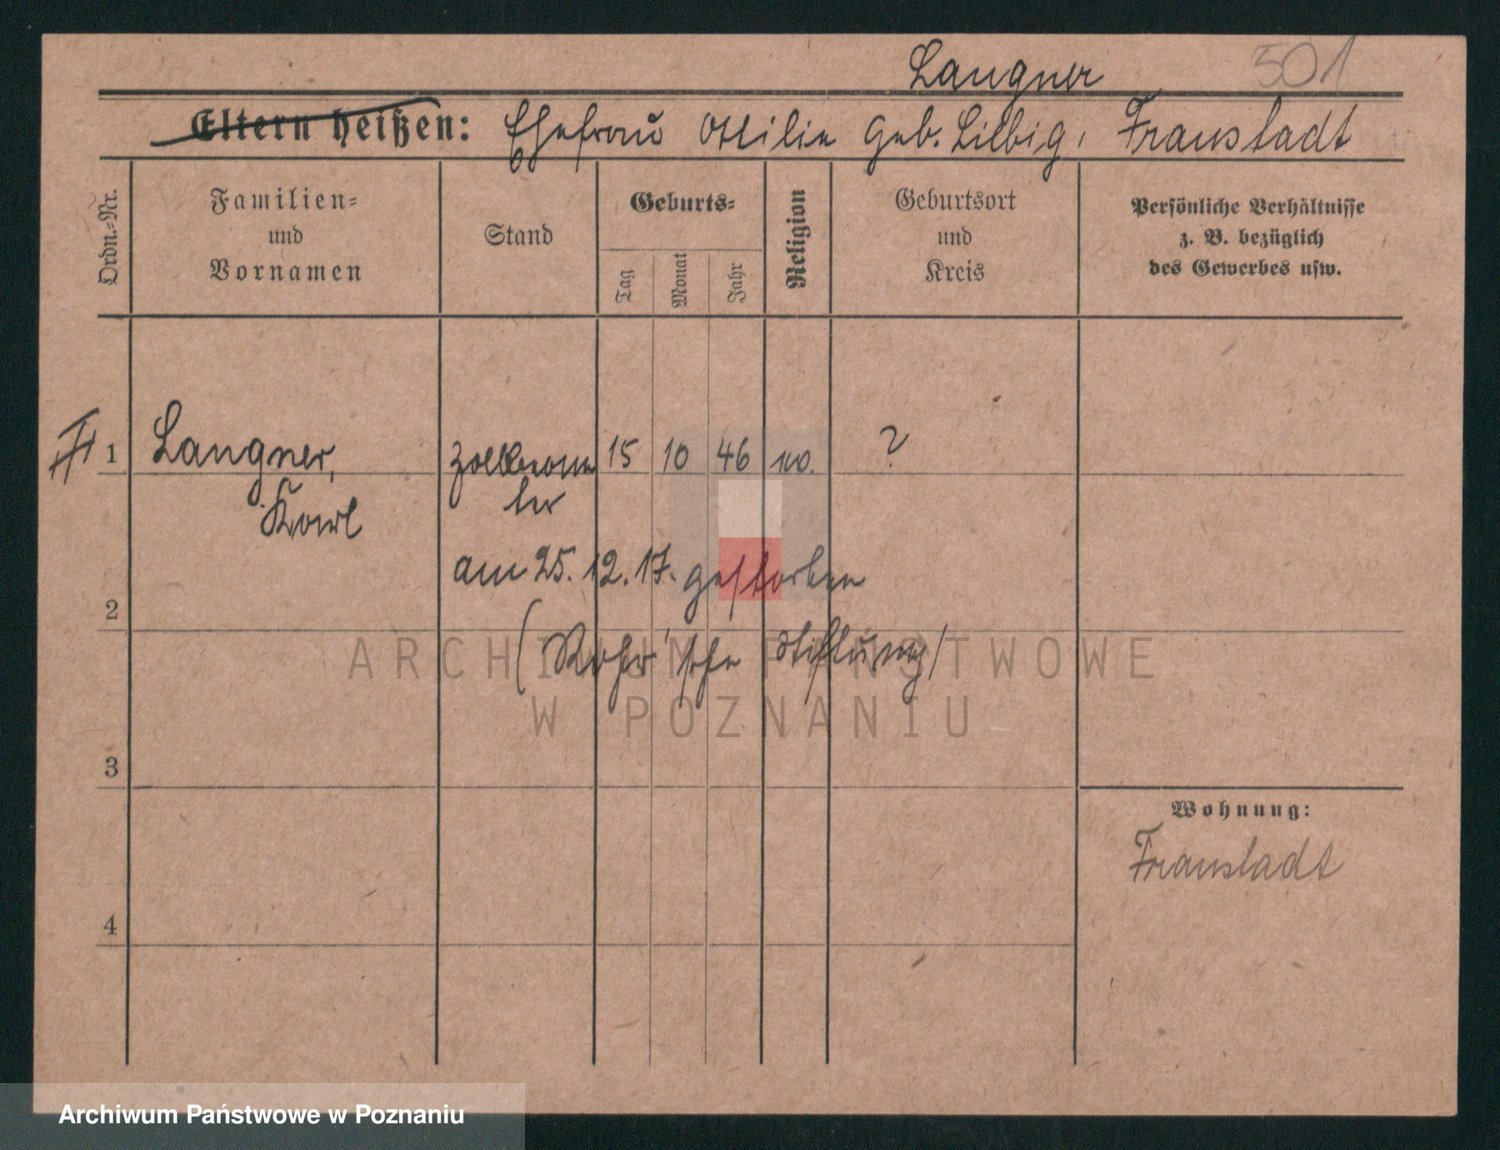 Langner 501
Eltern heißen: Ehefrau Ottilie geb. Liebig, Fraustadt
Ordn.-Nr.
Familien-
und
Vornamen
Stand
Geburts-
Tag
Monat
Jahr
Religion
Geburtsort
und
Kreis
Persönliche Verhältnisse
z. B. bezüglich
des Gewerbes usw.
1 Langner, Zollbeam 15 10 46 ?
Karl ter
am 25. 12. 17. gestorben
2
(Rohr'sche Stiftung)
ARCHIWUM PAŃSTWOWE
W POZNANIU
3
Wohnung:
Fraustadt
4
Archiwum Państwowe w Poznaniu